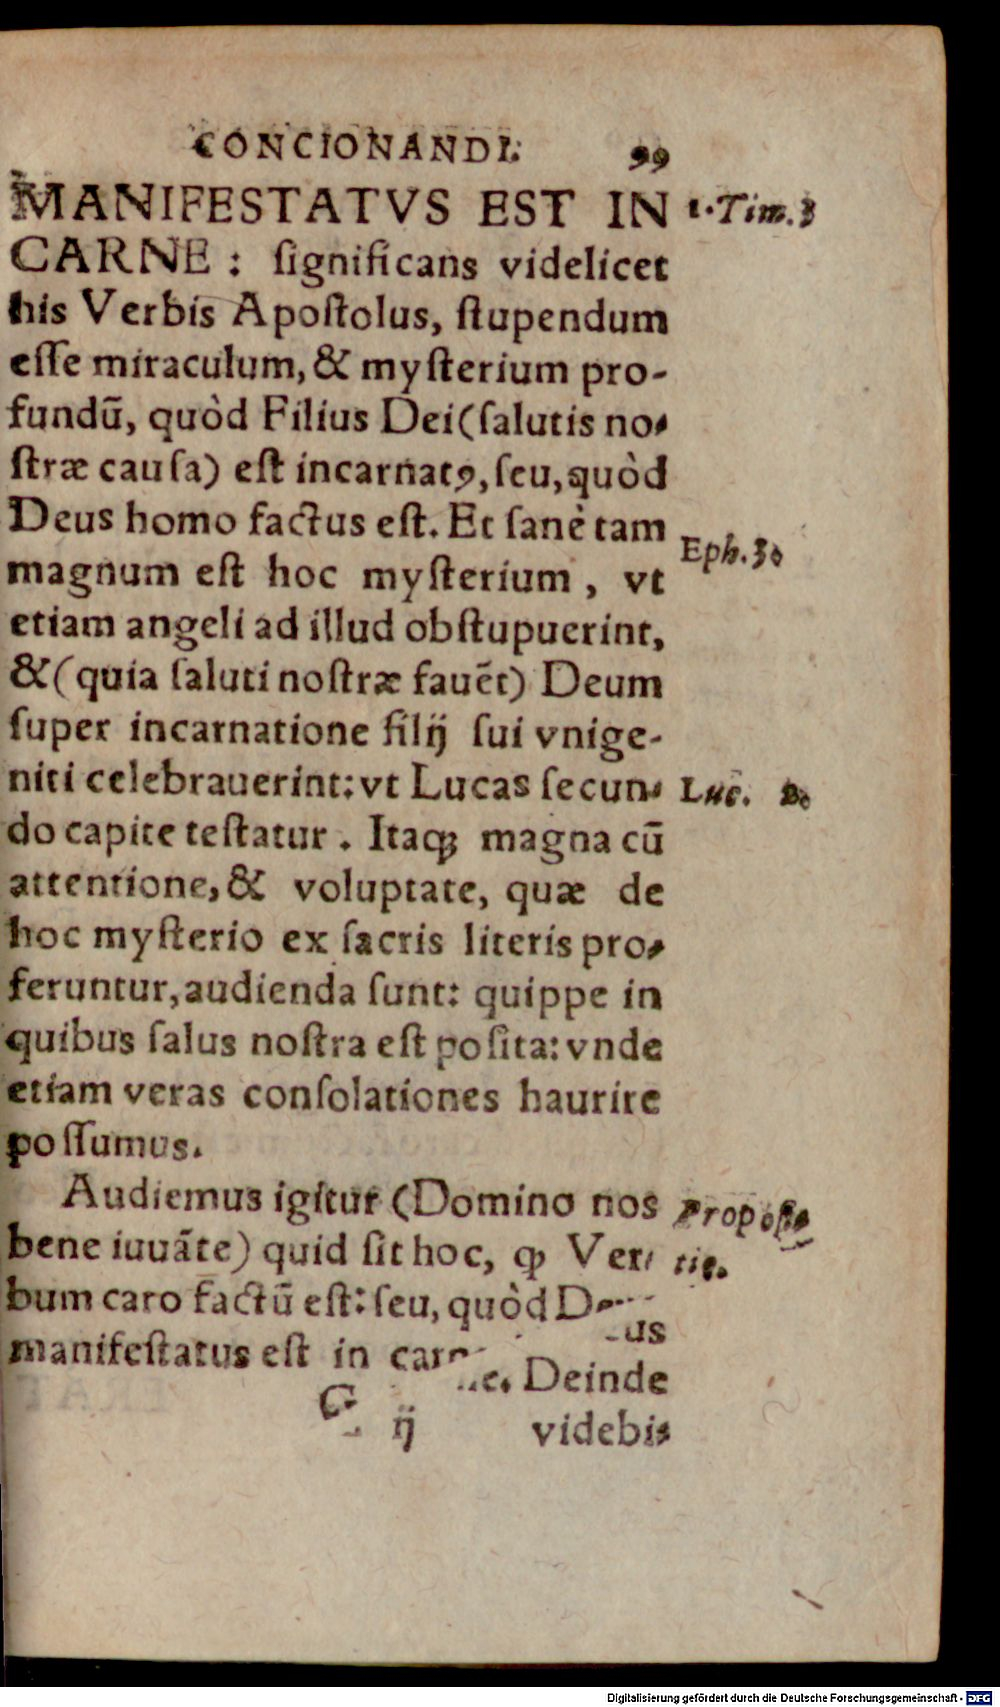 CONCIONANDI. 99
MANIFESTATVS EST IN
1. Tim. 3
CARNE: ſignificans videlicet
his Verbis Apoſtolus, ſtupendum
eſſe miraculum, & myſterium pro-
fundū, quòd Filius Dei (ſalutis no-
ſtræ cauſa) eſt incarnatꝰ, ſeu, quòd
Deus homo factus eſt. Et ſanè tam
Eph. 3.
magnum eſt hoc myſterium, vt
etiam angeli ad illud obſtupuerint,
& (quia ſaluti noſtræ fauēt) Deum
ſuper incarnatione filij ſui vnige-
niti celebrauerint: vt Lucas ſecun-
Luc. 2.
do capite teſtatur. Itaqꝫ magna cū
attentione, & voluptate, quæ de
hoc myſterio ex ſacris literis pro-
feruntur, audienda ſunt: quippe in
quibus ſalus noſtra eſt poſita: vnde
etiam veras conſolationes haurire
poſſumus.
Audiemus igitur (Domino nos
Propoſi-
bene iuuāte) quid ſit hoc, ꝙ Ver-
tio.
bum caro factū eſt: ſeu, quòd Deus
manifeſtatus eſt in carne. Deinde
G ij videbi-
Digitalisierung gefördert durch die Deutsche Forschungsgemeinschaft - DFG